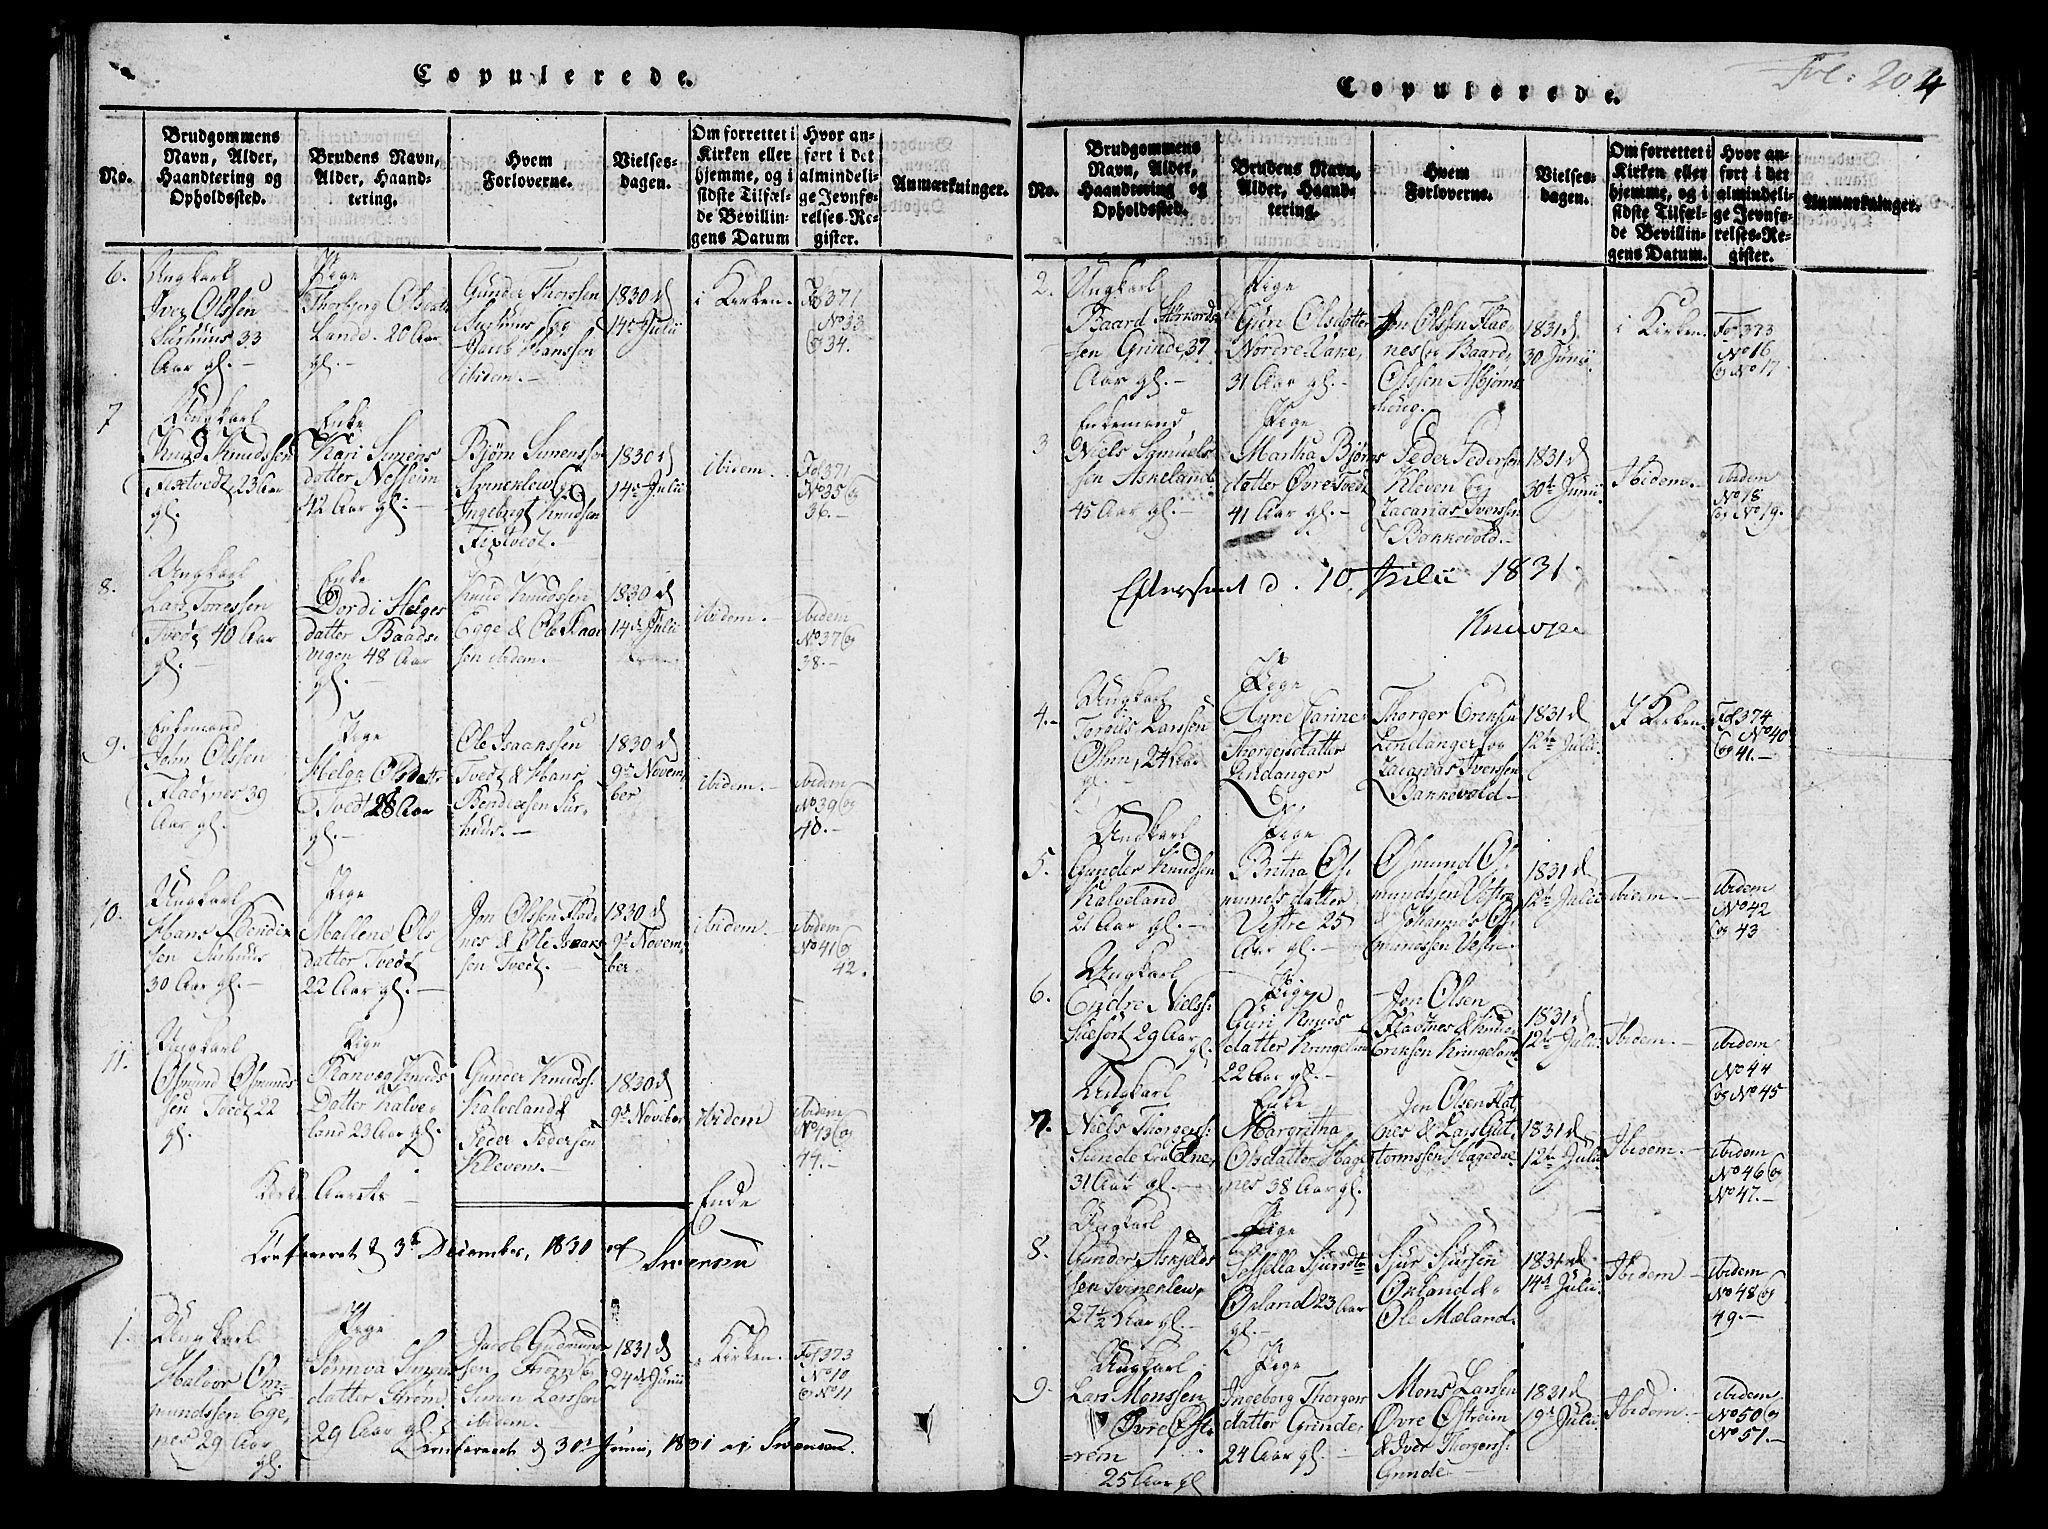 Copulerede.
No.
Brudgommens
Navn, Alder,
Haandtering og
Opholdssted.
Brudens Navn,
Alder, Haand-
tering.
Hvem
Forloverne.
Vielses-
dagen.
Om forrettet i
Kirken eller
hjemme, og i
sidste Tilfæl-
de Bevillin-
gens Datum
Hvor an-
ført i det
almindeli-
ge Jevnfø-
relses-Re-
gister.
Anmærkninger.
6.
Ungkarl
Iver Olssen
33
Aar gl.
Pige
Thorbjørg Olsdatter
Land 20 Aar
gl.
Gunder Thorssen
og
Jacob Hanssen
ibidem.
1830 d
14de Julii
i Kirken.
Fol 371
No 33
og 34.
7
Ungkarl
Knud Knudssen
Fixtvedt 23 Aar
gl.
Enke
Kari Simens
datter Nesheim
42 Aar gl.
Bjørn Simenssen
Svineklew og
Ingebregt Knudsen
Fixtvedt.
1830 d
14de Julii
ibidem.
Fol 371
No 35 og
36.
8.
Ungkarl
Lars Torressen
Tvedt 40 Aar
gl.
Enke
Gordi Helges
datter Baads-
vigen 48 Aar
gl.
Knud Knudssen
Egge & Ole Isaac
sen ibidem.
1830 d
14de Julii
ibidem.
ibidem
No 37 og
38.
9.
Enkemand
John Olssen
Fladnes 39
Aar gl.
Pige
Helga Olsdatter
Tvedt 28 Aar
gl.
Ole Isaakssen
Tvedt & Hans
Bendixsen Sur-
huus.
1830 d
9de Novem
ber
ibidem.
ibidem
No 39 og
40.
10.
Ungkarl
Hans Bendix
sen Surhuus
30 Aar gl.
Pige
Mallene Ols
datter Tvedt
22 Aar gl.
Jon Olssen Flad-
nes & Ole Isaaks
sen Tvedt.
1830 d
9de Novem-
ber
ibidem.
ibidem
No 41 og
42.
11.
Ungkarl
Osmund Osmunds
sen Tvedt 22
gl.
Pige
Ranvæg Knuds
Datter Kalve-
land 23 Aar gl.
Gunder Knudss.
Kalveland &
Peder Pedersen
Kleven.
1830 d
9de Novbber
ibidem
ibidem
No 43 og
44.
Kirke Aarets
Ende
Confereret d 3de December, 1830 af Svensen
1.
Ungkarl
Halvor Om-
mundssen Ege-
nes 29 Aar
gl.
Pige
Sønnva Simens
datter Strøm
29 Aar gl.
Jacob Gudmund
sen, Strøm og
Simen Larssen
ibidem.
1831 d
24de Junii
i Kirken.
Fol 373
No 10
og No 11
Confereret d 30te Junii, 1831 af Svensen.
Fol: 204
Copulerede.
No.
Brudgommens
Navn, Alder,
Haandtering og
Opholdssted.
Brudens Navn,
Alder, Haand-
tering.
Hvem
Forloverne.
Vielses-
dagen.
Om forrettet i
Kirken eller
hjemme, og i
sidste Tilfæl-
de Bevillin-
gens Datum.
Hvor an-
ført i det
almindeli-
ge Jevnfø-
relses-Re-
gister.
Anmærkninger.
2.
Ungkarl
Baard
sen Grinde, 37
Aar gl.
Pige
Guri Olsdatter
Nordre-Vane,
31 Aar gl.
Jon Olssen Flad-
nes og Baard
Olssen Asbjørns
houg.
1831 d
30 Junii.
i Kirken.
Fol 373
No 16
og No 17
3
Enkemand
Niels Samuels
sen Askeland
45 Aar gl.
Pige
Martha Bjørns
datter Øvre Tvedt
41 Aar gl.
Peder Pedersen
Kleven og
Zacarias Iverssen
Bakkevold.
1831 d
30te Junii.
Ibidem.
ibidem
No 18
og No 19.
Efterseet d. 10 Julii 1831.
4.
Ungkarl
Torgils Larssen
Øhn, 24 Aar
gl.
Pige
Anne Carine
Thorgersdatter
Lindanger
Thorger Eriksen
Lindanger og
Zacarias Iverssen
Bakkevold
1831 d
12te Julii.
I Kirken.
Fol 374
No 40
og 41.
5.
Ungkarl
Gunder Knudsen
Kalveland
21 Aar gl.
Pige
Britha Os-
munds datter
Vestre 25
Aar gl.
Osmund Os-
mundssen Vestre
& Johannes Os-
mundssen Vestre
1831 d
12te Julii
Ibidem.
ibidem
No 42
og 43
6.
Ungkarl
Endre Nielss.
Suefort 29 Aar
gl.
Pige
Guri Knuds
datter Kringeland
22 Aar gl.
Jon Olsen
Fladtnes & Knud
Eriksen Kringeland
1831 d
12te Julii
Ibidem.
ibidem
No 44
og No 45
7.
Ungkarl
Niels Thorgerss.
31 Aar gl.
Enke
Margretha
Olsdatter Hage-
nes 38 Aar gl.
Jon Olsen Flat-
nes & Lars Gut-
tormssen Hagedne
1831 d
12te Julii
Ibidem.
ibidem
No 46 og
No 47.
8.
Ungkarl
Gunder Askjelds
sen Svineklew,
27½ Aar gl.
Pige
Sessella Sjursdtr
Øxland 23 Aar
gl.
Sjur Sjursen
Øxland &
Ole Mæland.
1831 d
14de Julii
Ibidem
ibidem
No 48 og
49.
9.
Ungkarl
Lars Monssen
Øvre Øst-
rem
25 Aar gl
Pige
Ingeborg Thorgers
datter Grinde,
24 Aar gl.
Mons Larsen
Øvre Østreim
& Iver Thorgerss.
Grinde
1831 d
19de Julii
Ibidem.
ibidem.
No 50 og
No 51.